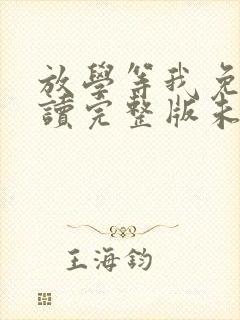 放學等我免
讀完整版未
王海鈞